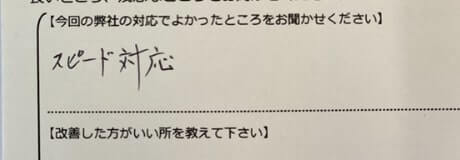 【今回の弊社の対応でよかったところをお聞かせください】
スピード対応
【改善した方がいい所を教えて下さい】